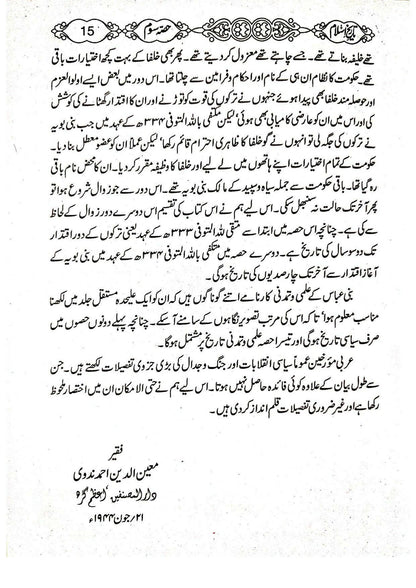 تاریخ اسلام
حصہ سوم
15
تھے خلیفہ بناتے تھے۔ جسے چاہتے تھے معزول کر دیتے تھے۔ پھر بھی خلفا کے بہت کچھ اختیارات باقی
تھے۔ حکومت کا نظام ان ہی کے نام اور احکام و فرامین سے چلتا تھا۔ اس دور میں بعض ایسے اولوالعزم
اور حوصلہ مند خلفا بھی پیدا ہوئے جنہوں نے ترکوں کی قوت کو توڑنے اور ان کا اقتدار گھٹانے کی کوشش
کی اور اس میں ان کو عارضی کامیابی بھی ہوئی لیکن متکفی باللہ المتوفی ۳۳۴ھ کے عہد میں جب بنی بویہ
نے ترکوں کی جگہ لی تو انہوں نے گو خلفا کا ظاہری احترام قائم رکھا' لیکن عملاً ان کو عضو معطل بنا دیا۔
حکومت کے تمام اختیارات اپنے ہاتھوں میں لے لیے اور خلفا کا وظیفہ مقرر کر دیا۔ ان کا محض نام باقی
رہ گیا تھا۔ باقی حکومت سے جملہ سیاہ و سپید کے مالک بنی بویہ تھے۔ اس دور سے جو زوال شروع ہوا تو
پھر آخر تک حالت نہ سنبھل سکی۔ اس لیے ہم نے اس کتاب کی تقسیم اس دوسرے دور زوال کے لحاظ
سے کی ہے۔ چنانچہ اس حصہ میں ابتدا سے متقی باللہ المتوفی ۳۳۳ھ کے عہد یعنی ترکوں کے دور اقتدار
تک دو سو سال کی تاریخ ہے۔ دوسرے حصہ میں متکفی باللہ المتوفی ۳۳۴ھ کے عہد میں بنی بویہ کے
آغاز اقتدار سے آخر تک چار صدیوں کی تاریخ ہوگی۔
بنی عباس کے علمی و تمدنی کارنامے اتنے گوناگوں ہیں کہ ان کو ایک علیحدہ مستقل جلد میں لکھنا
مناسب معلوم ہوا' تاکہ اس کی مرتب تصویر نگاہوں کے سامنے آ سکے۔ چنانچہ پہلے دونوں حصوں میں
صرف سیاسی تاریخ ہوگی اور تیسرا حصہ علمی و تمدنی تاریخ پر مشتمل ہوگا۔
عربی مؤرخین عموماً سیاسی انقلابات اور جنگ و جدال کی بڑی جزوی تفصیلات لکھتے ہیں۔ جن
سے طول بیان کے علاوہ کوئی فائدہ حاصل نہیں ہوتا۔ اس لیے ہم نے حتی الامکان ان میں اختصار ملحوظ
رکھا ہے اور غیر ضروری تفصیلات قلم انداز کر دی ہیں۔
فقیر
معین الدین احمد ندوی
دارالمصنفین' اعظم گڑھ
۲۱/جون ۱۹۴۴ء